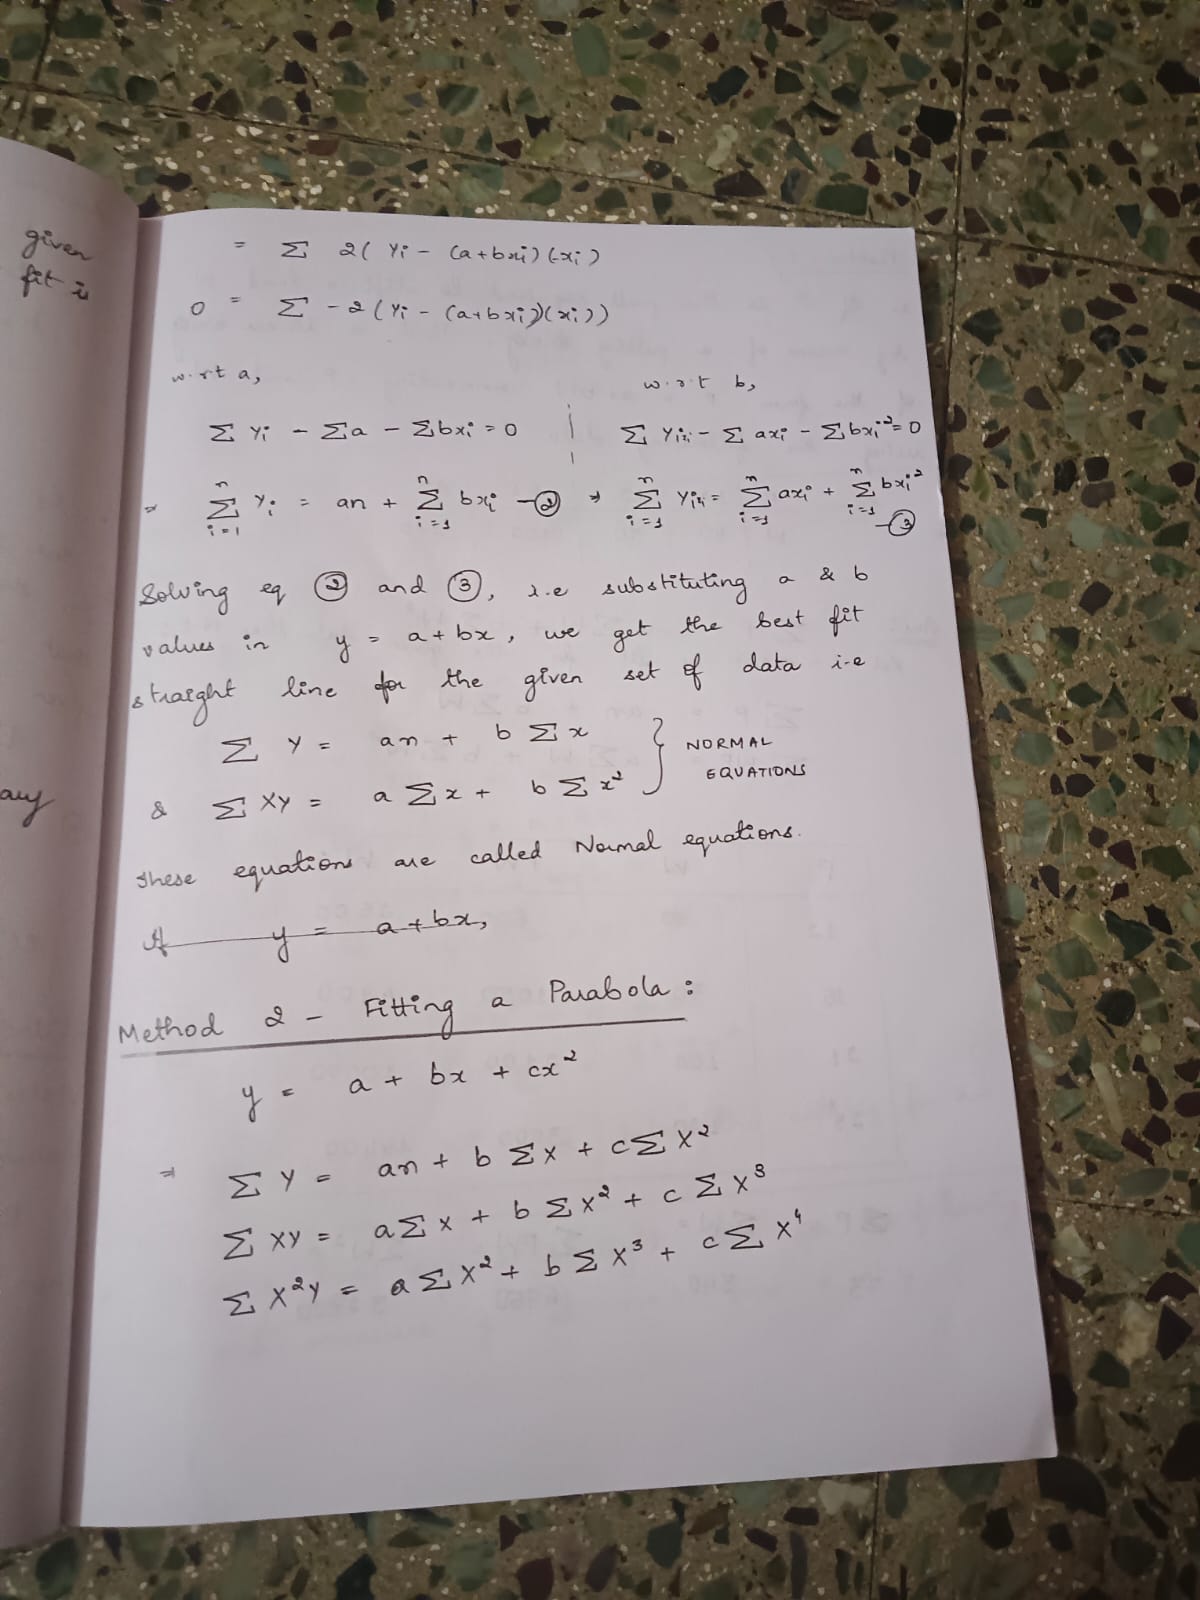 given
fit is
any
= Σ 2( Yi - (a+bxi) (-xi)
0 = Σ -2 (Yi - (a+bxi)(xi))
w.r.t a,
w.r.t b,
Σ Yi - Σa - Σbxi = 0
Σ Yixi - Σ axi - Σbxi² = 0
⇒ Σ(i=1 to n) Yi = an + Σ(i=1 to n) bxi -②
⇒ Σ(i=1 to n) Yixi = Σ(i=1 to n) axi + Σ(i=1 to n) bxi² -③
Solving eq ② and ③, i.e substituting a & b
values in y = a+bx, we get the best fit
straight line for the given set of data i-e
Σ Y = an + b Σ x } NORMAL
& Σ XY = a Σ x + b Σ x² EQUATIONS
these equations are called Normal equations.
If y = a+bx,
Method 2 - Fitting a Parabola :
y = a + bx + cx²
⇒ Σ Y = an + b Σ X + c Σ X²
Σ XY = a Σ X + b Σ X² + c Σ X³
Σ X²Y = a Σ X² + b Σ X³ + c Σ X⁴